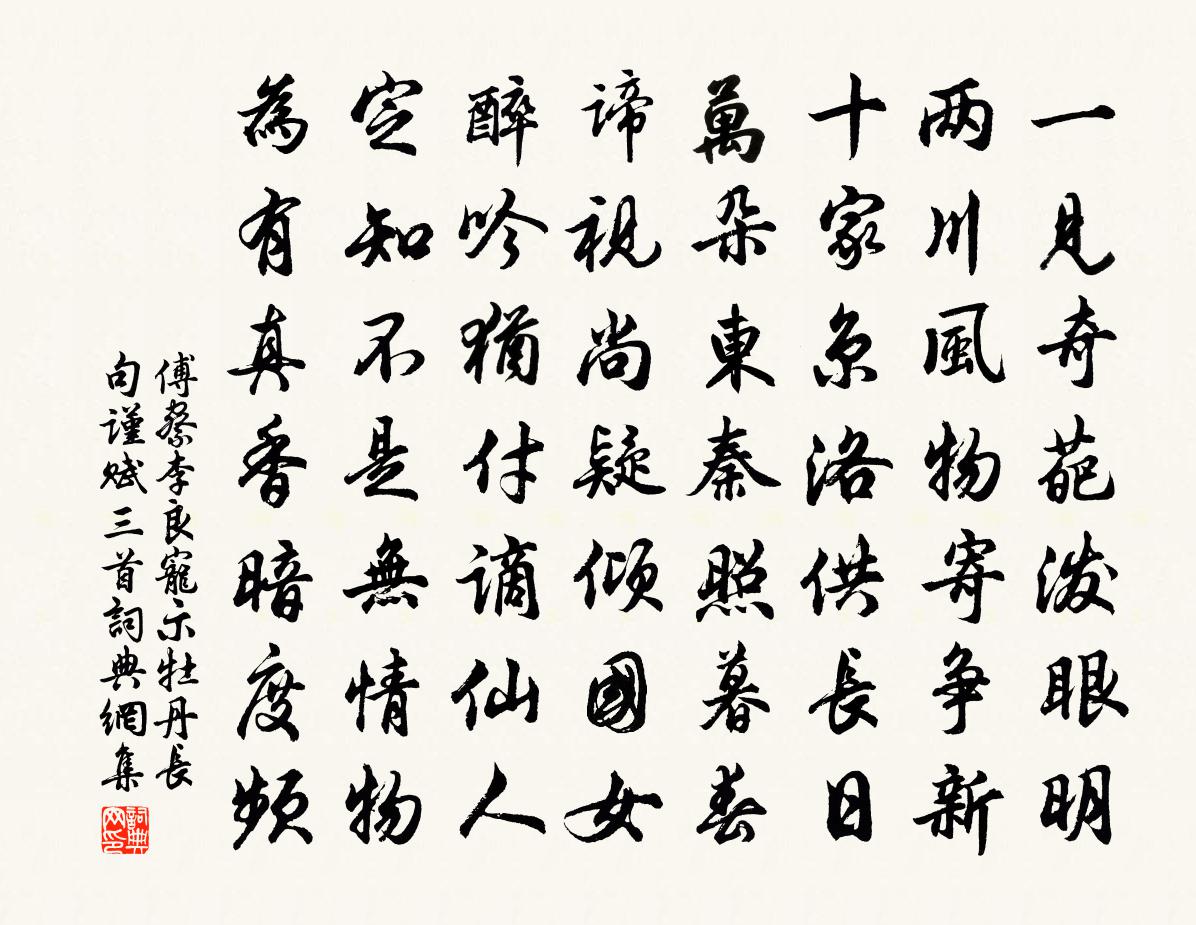 一見奇葩潑眼明
两川風物寄争新
十家京洛供長日
萬朵東秦照暮春
諦視尚疑傾國女
醉吟猶付謫仙人
定知不是無情物
為有真香暗度頻
傅察李良寵示牡丹長
句謹賦三首詞典網集
詞典
网印